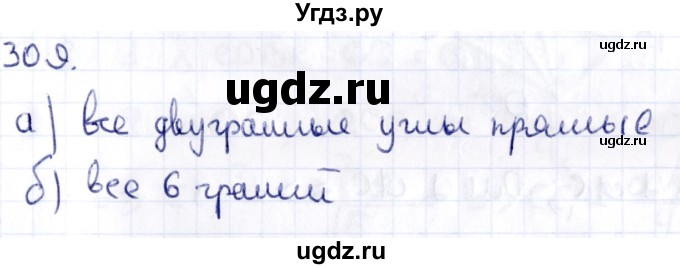 Угдз.ру
309.
ugdz.ru
ugdz.ru
а) все двугранные углы прямые
ugdz.ru
б) все 6 граней
ugdz.ru
ugdz.ru